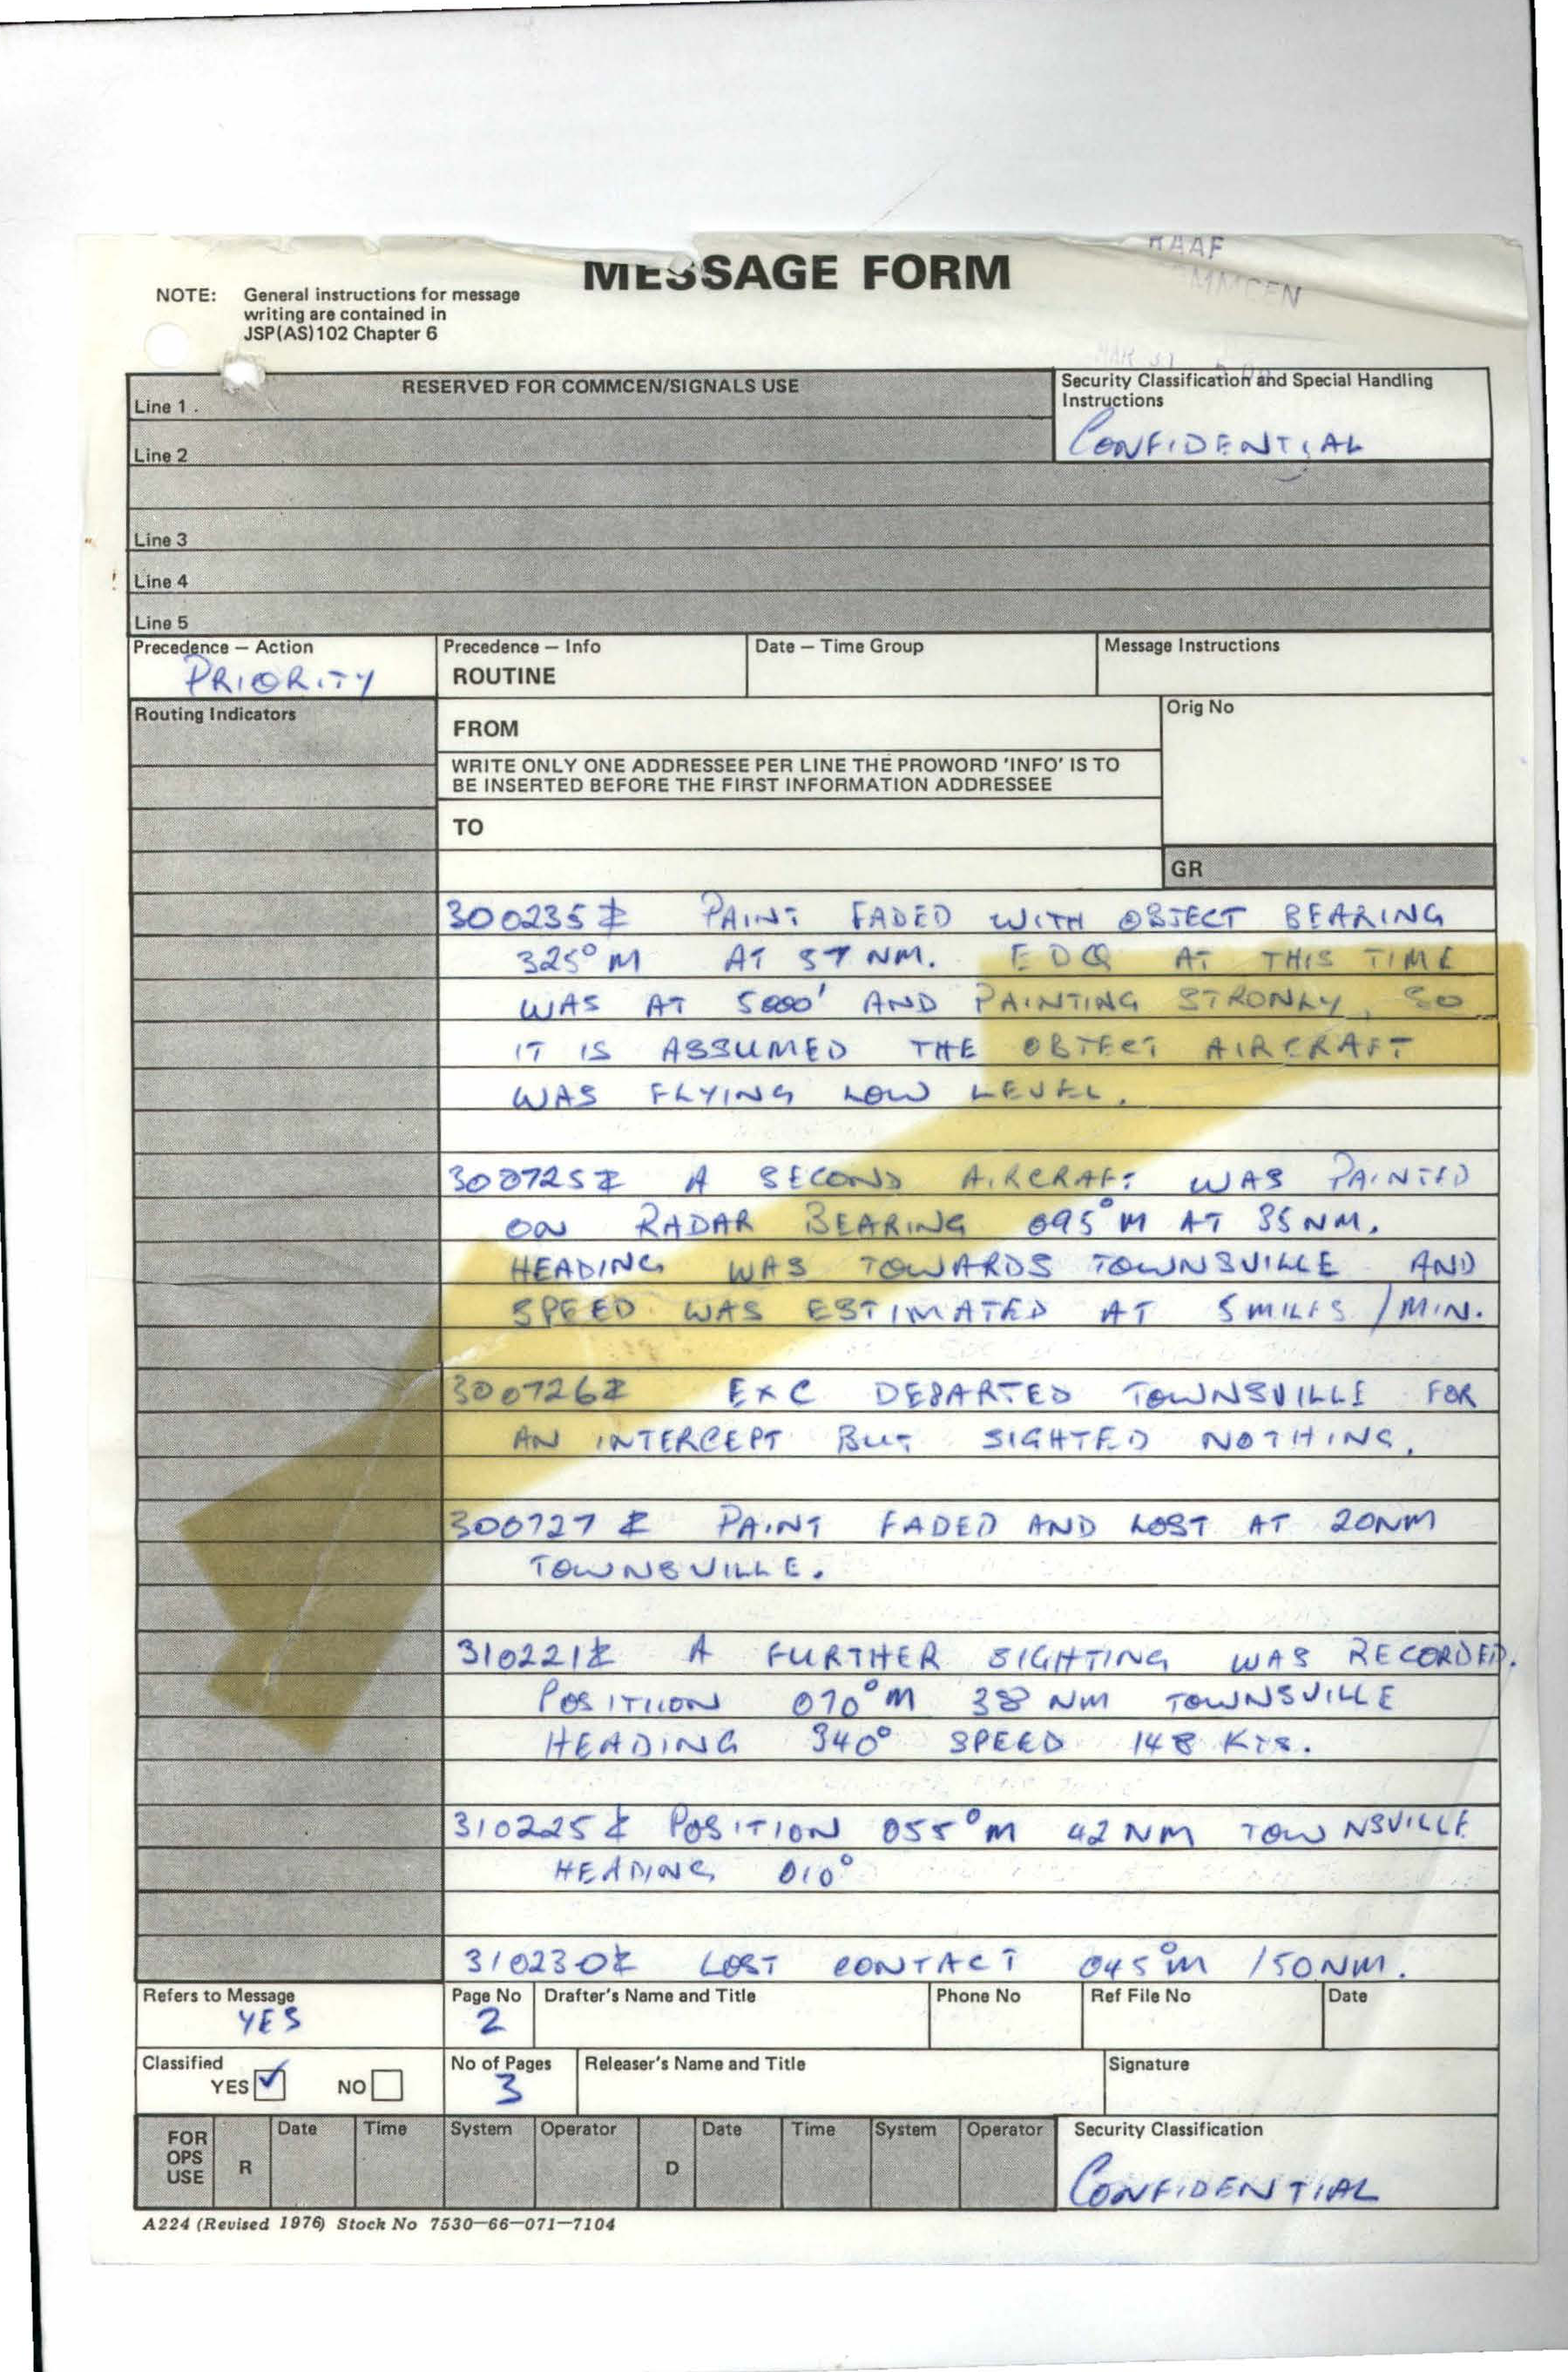 RAAF
MMCEN
MESSAGE FORM
NOTE: General instructions for message
writing are contained in
JSP(AS)102 Chapter 6
MAR 31
RESERVED FOR COMMCEN/SIGNALS USE
Security Classification and Special Handling
Instructions
CONFIDENTIAL
Line 1
Line 2
Line 3
Line 4
Line 5
Precedence — Action
PRIORITY
Precedence — Info
ROUTINE
Date — Time Group
Message Instructions
Routing Indicators
FROM
Orig No
WRITE ONLY ONE ADDRESSEE PER LINE THE PROWORD 'INFO' IS TO
BE INSERTED BEFORE THE FIRST INFORMATION ADDRESSEE
TO
GR
300235Z PAINT FADED WITH OBJECT BEARING
325°M AT 57 NM. EDQ AT THIS TIME
WAS AT 5000' AND PAINTING STRONLY, SO
IT IS ASSUMED THE OBJECT AIRCRAFT
WAS FLYING LOW LEVEL.
300725Z A SECOND AIRCRAFT WAS PAINTED
ON RADAR BEARING 095°M AT 35NM.
HEADING WAS TOWARDS TOWNSVILLE AND
SPEED WAS ESTIMATED AT 5 MILES / MIN.
300726Z EXC DEPARTED TOWNSVILLE FOR
AN INTERCEPT BUT SIGHTED NOTHING.
300727Z PAINT FADED AND LOST AT 20NM
TOWNSVILLE.
310221Z A FURTHER SIGHTING WAS RECORDED.
POSITIION 070°M 38 NM TOWNSVILLE
HEADING 340° SPEED 148 KTS.
310225Z POSITION 055°M 42 NM TOWNSVILLE
HEADING 010°
310230Z LOST CONTACT 045°M /50NM.
Refers to Message
YES
Page No
2
Drafter's Name and Title
Phone No
Ref File No
Date
Classified
YES ✓ NO
No of Pages
3
Releaser's Name and Title
Signature
FOR
OPS
USE
R
Date Time System Operator
D
Date Time System Operator
Security Classification
CONFIDENTIAL
A224 (Revised 1976) Stock No 7530—66—071—7104